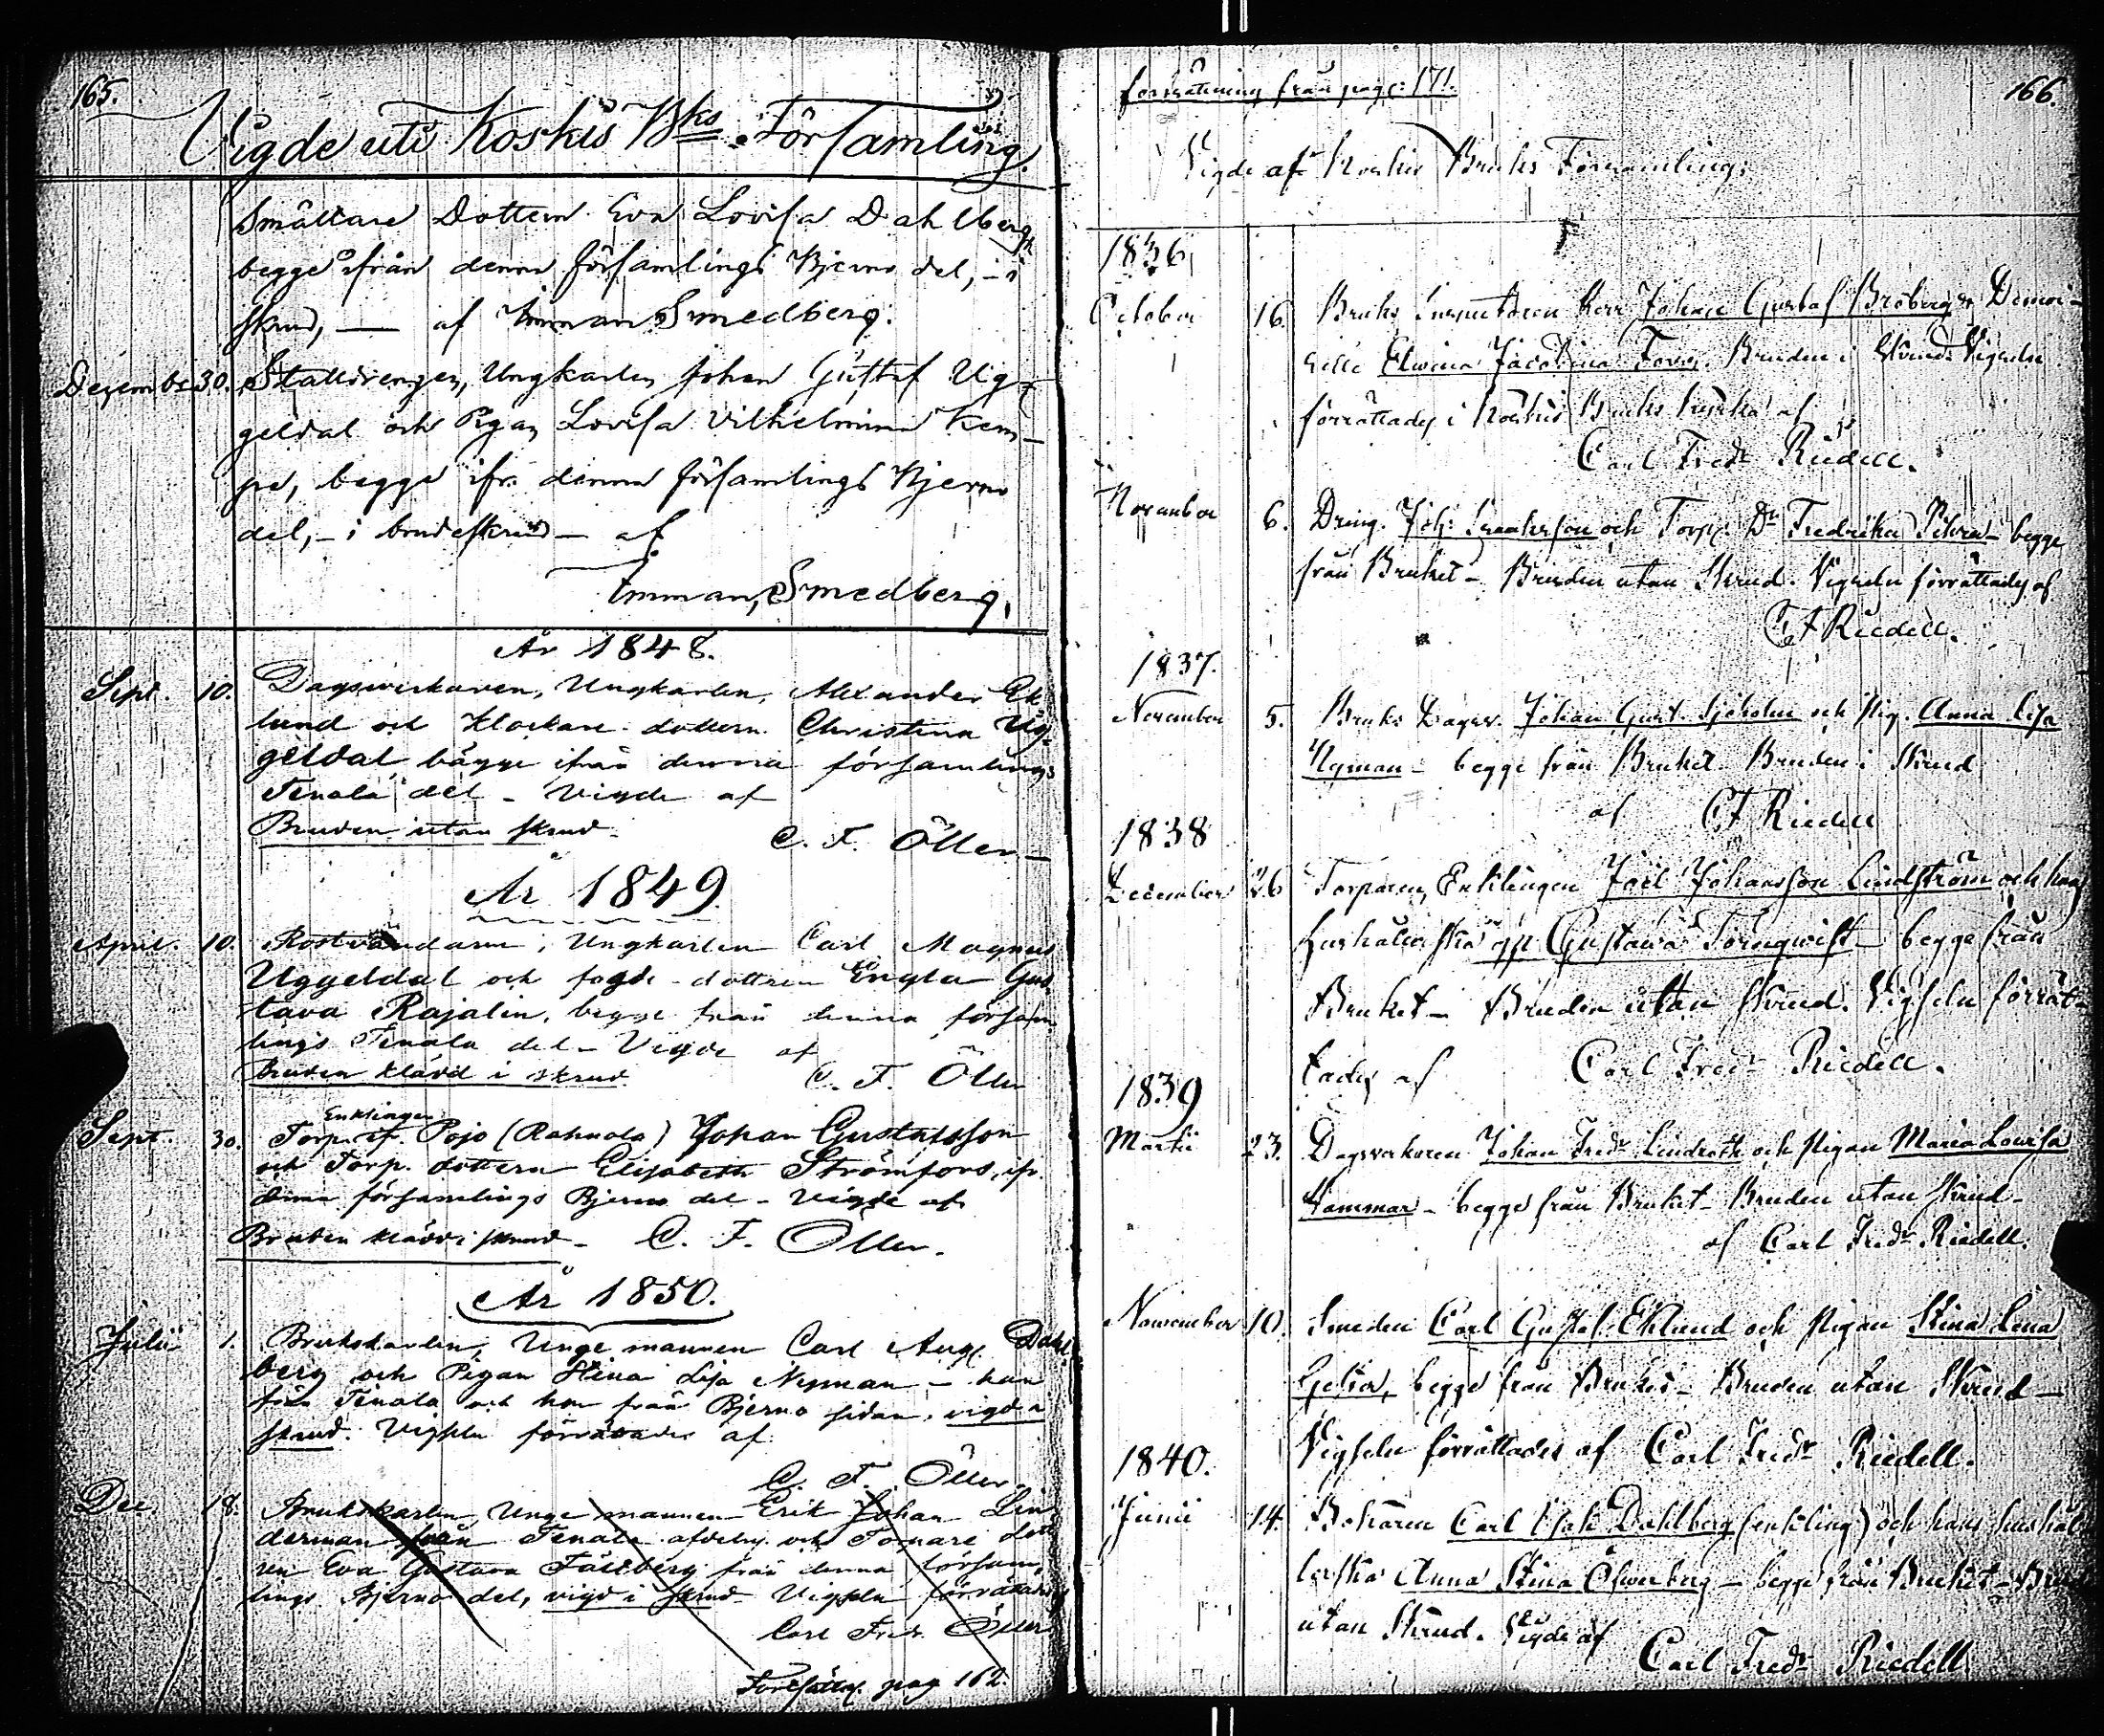 165.
Vigde uti Koskis Bks Församling.
Smältare Dottern Eva Lovisa Dahlberg
begge ifrån denna församlings Bjerno del, - i
skrud, — af Imman. Smedberg.
Dezembr 30. Stalldrengen, Ungkarlen Johan Gustaf Ug-
geldal och Pigan Lovisa Vilhelmina Kem-
pe, begge ifr. denna församlings Bjerno
del, - i brudeskrud - af
Imman. Smedberg.
År 1848.
Sept. 10. Dagsverkaren, Ungkarlen, Alexander Ek
lund och Klockare dottern Christina Ug-
geldal bägge ifrån denna församlings
Tenala del - Vigde af
Bruden utan skrud. C. F. Öller —
År 1849.
April. 10. Rostvändaren, Ungkarlen Carl Magnus
Uggeldal och fogde-dottren Engla Gus
tava Rajalin, begge från denna försam
lings Tenala del - Vigde af
Bruden klädd i skrud C. F. Öller
Enklingen
Sept. 30. Torp. if. Pojo (Rahnola) Johan Gustafsson
och Torp. dottern Elisabeth Strömfors, ifr.
denna församlings Bjerno del - Vigde af
Bruden klädd i skrud - C. F. Öller.
År 1850.
Julii 1. Brukskarlen, Unge mannen Carl Aug. Dahl
berg och Pigan Stina Lisa Nyman - han
från Tenala och hon från Bjerno sidan, vigd i
skrud. Vigseln förrättades af
C. F. Öller
Dec. 18. Brukskarlen, Unge mannen Erik Johan Lin
derman från Tenala afdeln. och dott
ren Eva Gustava Fältberg från denna försam
lings Bjerno del, vigd i skrud Vigseln förrättades
Carl Fredr. Öller
Fortsättn. pag 162.
166.
fortsättning från pag: 171.
Vigde af Koskis Bruks Församling:
1836
October 16. Bruks Inspectoren Herr Johan Gustaf Broberg & Demoi-
selle Elwina Jacobina Bruden i Skrud. Vigseln
förrättades i Koskis Bruks kyrka af
Carl Fredr Riedell.
November 6. Dräng. Joh: Isaaksson och Torp. Dr Fredrika begge
från Bruket - Bruden utan Skrud. Vigseln förrättades af
C F Riedell.
1837.
November 5. Bruks Dagsv. Johan Gust. Sjöholm och Pig. Anna Lisa
Nyman - begge från Bruket. Bruden i Skrud
af C F Riedell
1838
December 26 Torparen, Enklingen Joel Johansson Lindström och hans
Hushållerska Gustava Törnqwist - begge från
Bruket - Bruden utan Skrud. Vigseln förrät-
tades af Carl Fredr Riedell.
1839
Martii 23. Dagsverkaren Johan Fredr Lindroth och Pigan Maria Lovisa
Hammar - begge från Bruket - Bruden utan Skrud -
af Carl Fredr Riedell.
November 10. Smeden Carl Gustaf Eklund och Pigan Stina Lena
begge från Bruket - Bruden utan Skrud -
Vigseln förrättades af Carl Fredr Riedell.
1840.
Junii 14. Carl Isak Dahlberg (enkling) och hans hushål
lerska Anna Stina Öfverberg - begge från Bruket - Brud
utan Skrud. Vigde af
Carl Fredr Riedell.